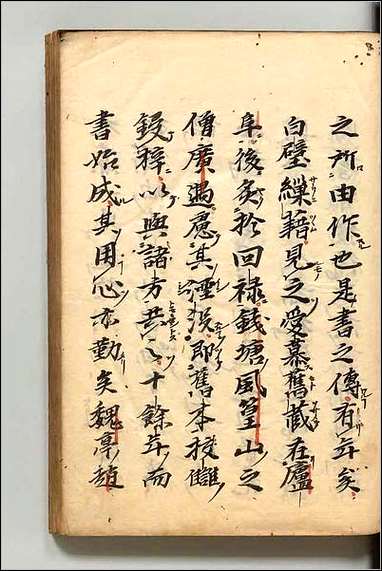 之所由作也是書之傳有年矣
白璧繅藉見之愛慕舊蔵在廬
阜後失於回禄錢塘風篁山之
僧廣遇慮其湮没即舊本校讎
鋟梓以與諸方共之十餘年而
書始成其用心亦勤矣魏亭趙